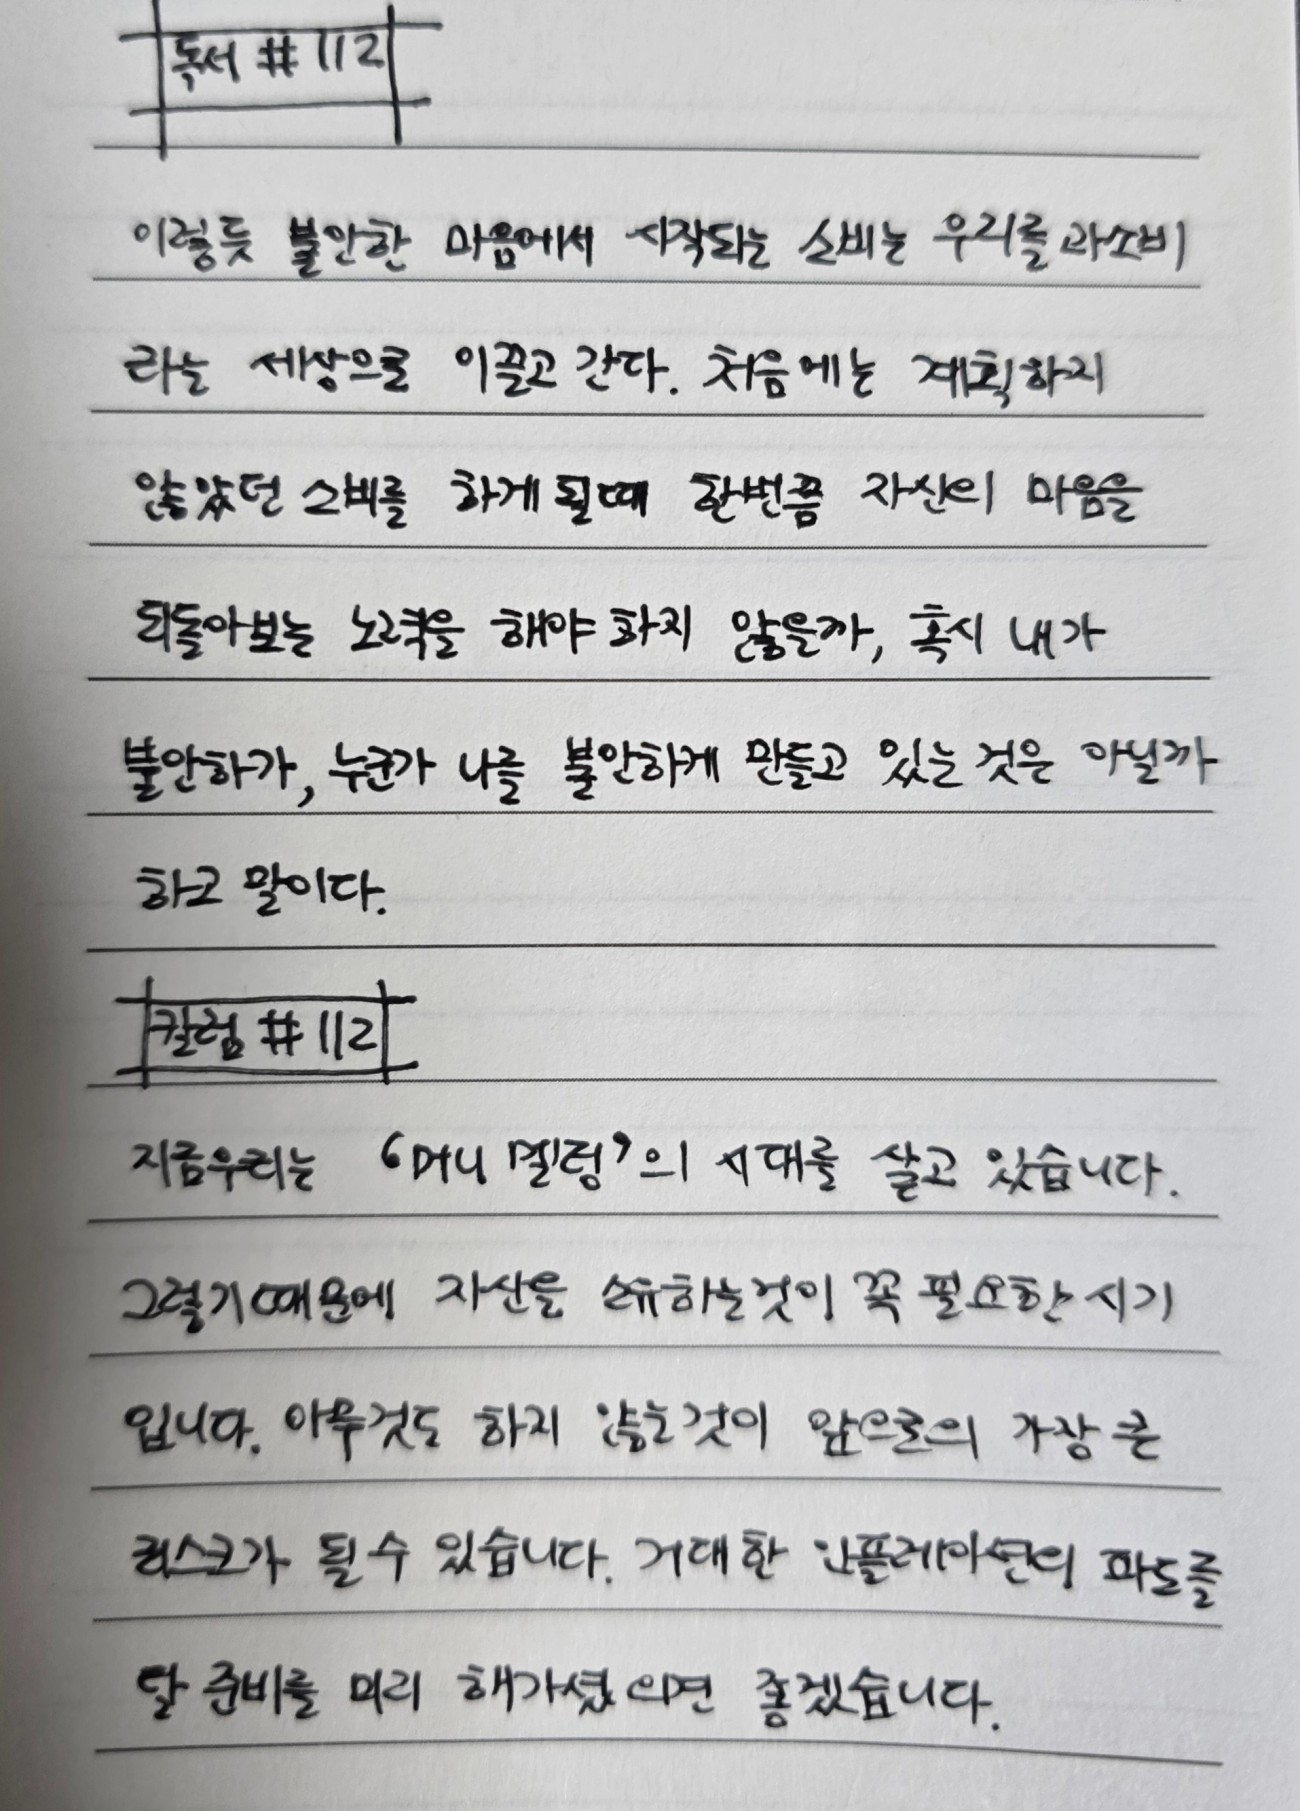 독서 #112
이렇듯 불안한 마음에서 시작되는 소비는 우리를 과소비
라는 세상으로 이끌고 간다. 처음에는 계획하지
않았던 소비를 하게 될때 한번쯤 자신의 마음을
되돌아보는 노력을 해야 하지 않을까, 혹시 내가
불안하가, 누군가 나를 불안하게 만들고 있는 것은 아닐까
하고 말이다.
칼럼 #112
지금우리는 '머니 멜팅'의 시대를 살고 있습니다.
그렇기때문에 자산을 소유하는것이 꼭 필요한 시기
입니다. 아무것도 하지 않는것이 앞으로의 가장 큰
리스크가 될 수 있습니다. 거대한 인플레이션의 파도를
탈 준비를 미리 해가셨으면 좋겠습니다.